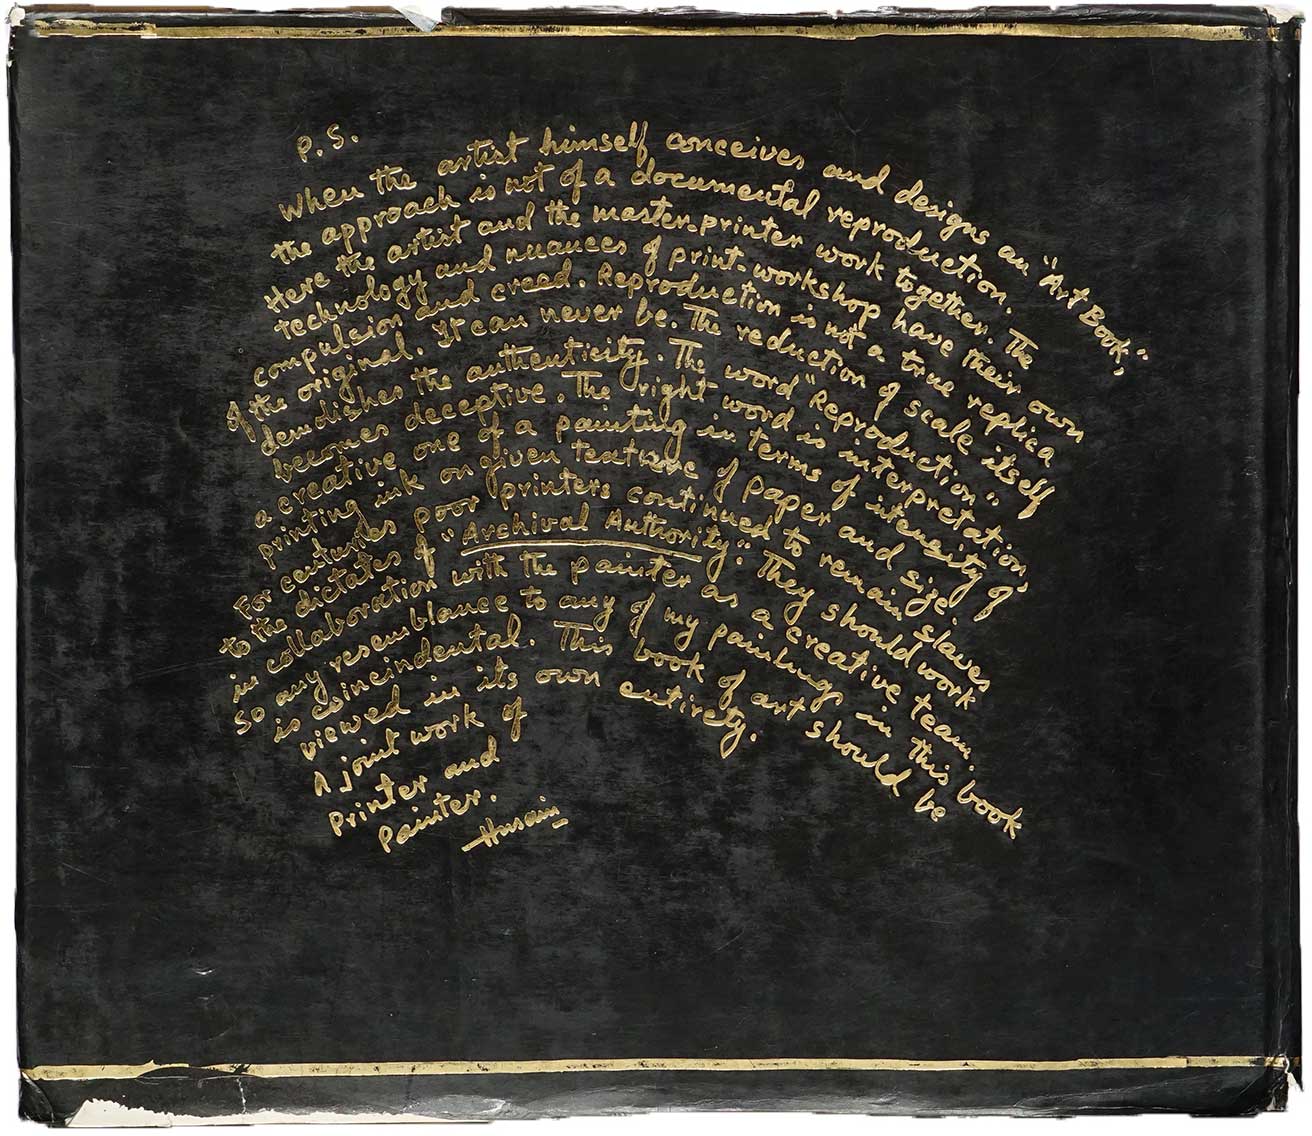 P.S.
When the artist himself conceives and designs an "Art Book",
the approach is not of a documental reproduction.
Here the artist and the master-printer work together. The
technology and nuances of print-workshop have their own
compulsion and creed. Reproduction is not a true replica
of the original. It can never be. The reduction of scale itself
demolishes the authenticity. The word "Reproduction"
becomes deceptive. The right word is interpretation,
a creative one of a painting in terms of intensity of
printing ink on given texture of paper and size.
For centuries poor printers continued to remain slaves
to the dictates of "Archival Authority". They should work
in collaboration with the painter as a creative team.
So any resemblance to any of my paintings in this book
is coincindental. This book of art should be
viewed in its own entirety.
A joint work of
Printer and
Painter.
Husain